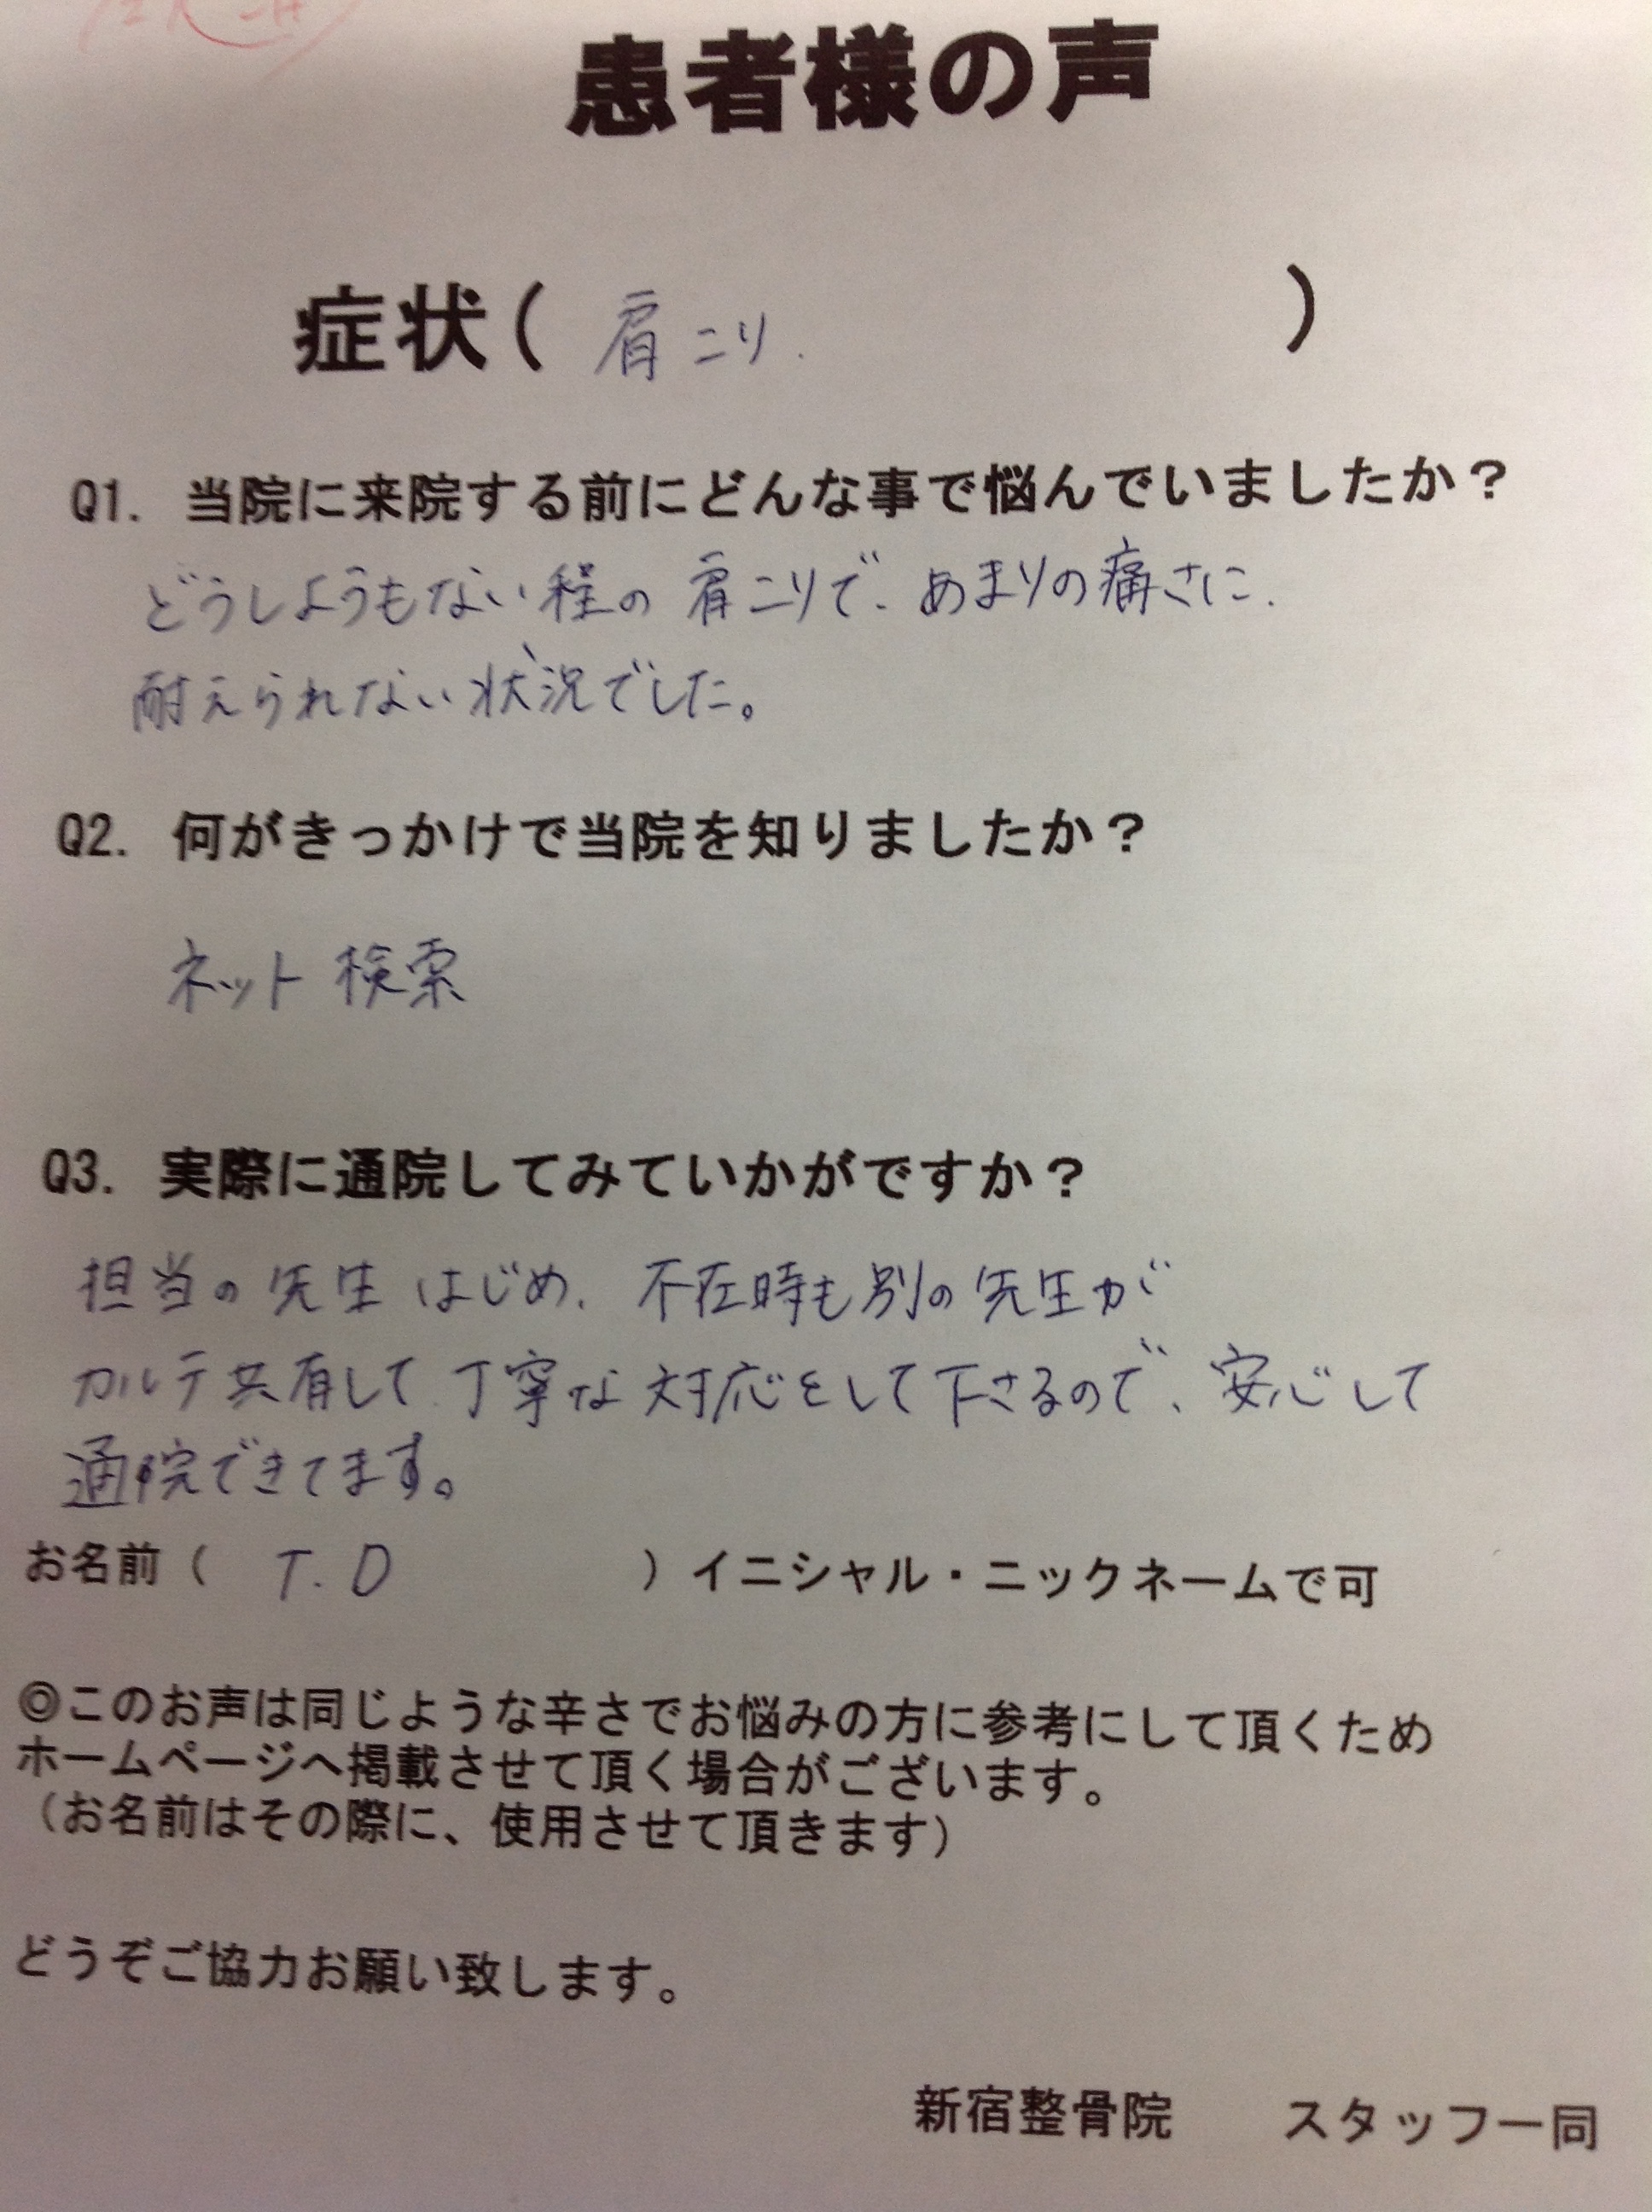 患者様の声
症状( 肩こり. )
Q1. 当院に来院する前にどんな事で悩んでいましたか？
どうしようもない程の肩こりで、あまりの痛さに、
耐えられない状況でした。
Q2. 何がきっかけで当院を知りましたか？
ネット検索
Q3. 実際に通院してみていかがですか？
担当の先生はじめ、不在時も別の先生が
カルテ共有して、丁寧な対応をして下さるので、安心して
通院できてます。
お名前（ T.D ）イニシャル・ニックネームで可
◎このお声は同じような辛さでお悩みの方に参考にして頂くため
ホームページへ掲載させて頂く場合がございます。
（お名前はその際に、使用させて頂きます）
どうぞご協力お願い致します。
新宿整骨院 スタッフ一同